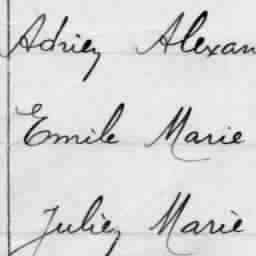 Adrien Alexan
Emile Marie
Julien Marie